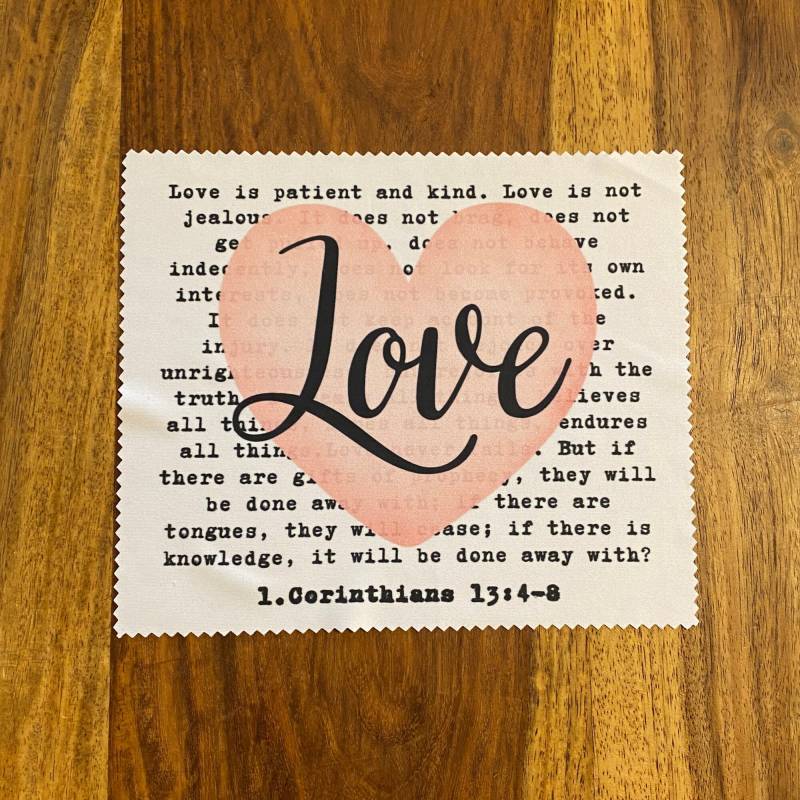 Love is patient and kind. Love is not
jealous. It does not brag, does not
get puffed up, does not behave
indecently, does not look for its own
interests, does not become provoked.
It does not keep account of the
injury. It does not rejoice over
unrighteousness, rejoices with the
truth. bears all things, believes
all things, hopes all things, endures
all things.Love never fails. But if
there are gifts of prophecy, they will
be done away with; if there are
tongues, they will cease; if there is
knowledge, it will be done away with?
Love
1.Corinthians 13:4-8